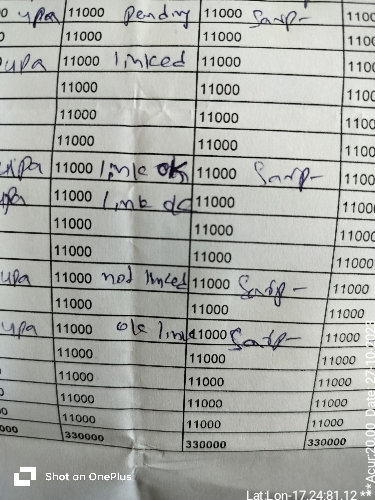 upa 11000 pending 11000 Sarp- 1100
upa 11000 linked 11000 1100
11000 11000 1100
11000 11000 1100
11000 11000 1100
upa 11000 link ok 11000 Sarp- 1100
upa 11000 link 11000 1100
11000 11000 1100
11000 11000 1100
upa 11000 not linked 11000 Sarp- 1100
11000 11000 1100
upa 11000 ok link 11000 Sarp- 1100
11000 11000 11000
11000 11000 11000
11000 11000 11000
11000 11000 11000
0000 330000 330000 330000
Shot on OnePlus
Lat:Lon-17.24:81.12